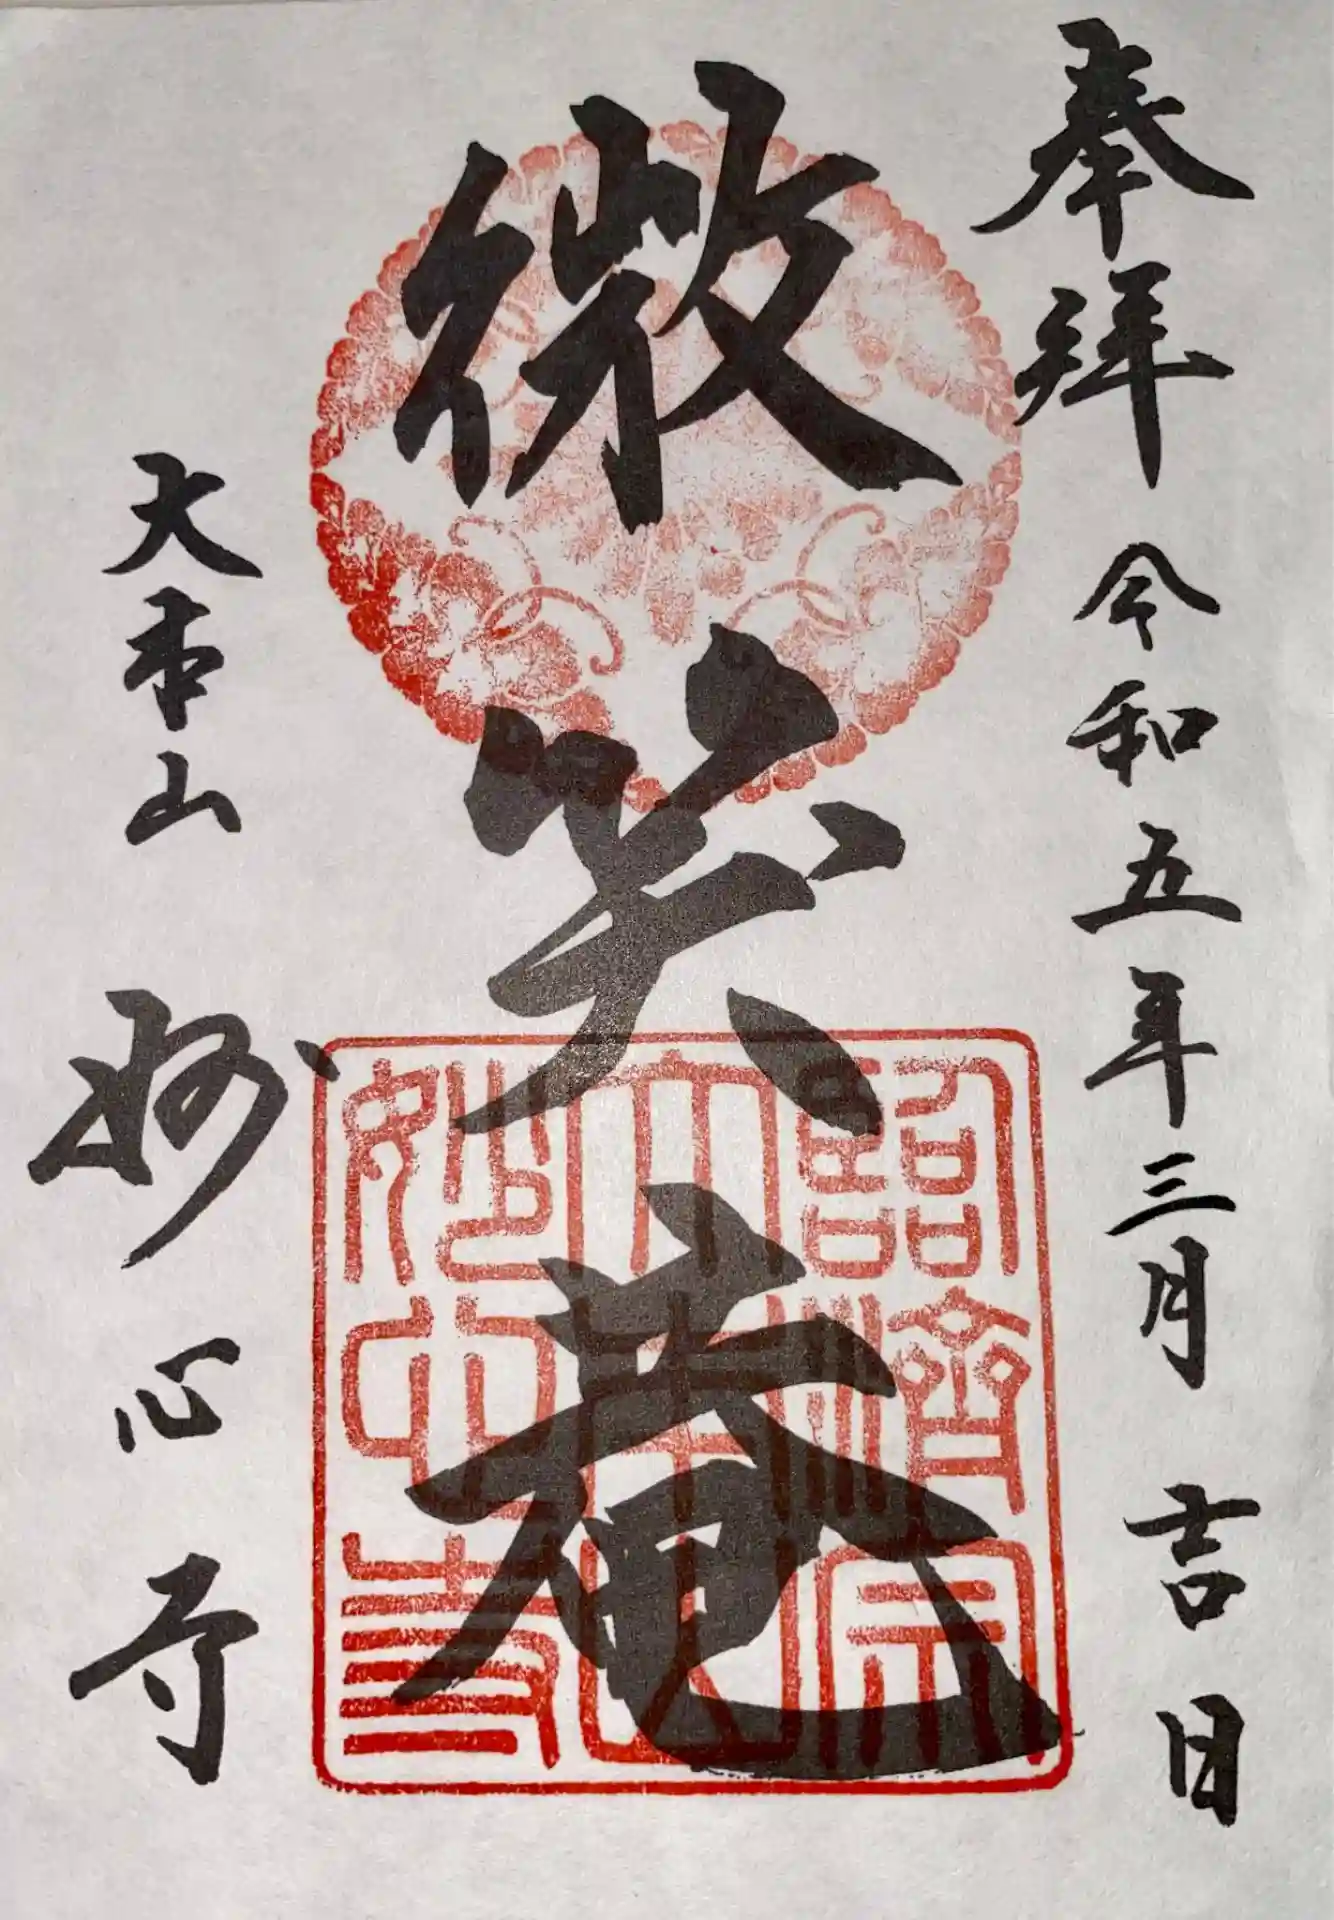 奉拝 令和五年三月 吉日
微笑菴
大本山 妙心寺
臨済宗
大本山
妙心寺